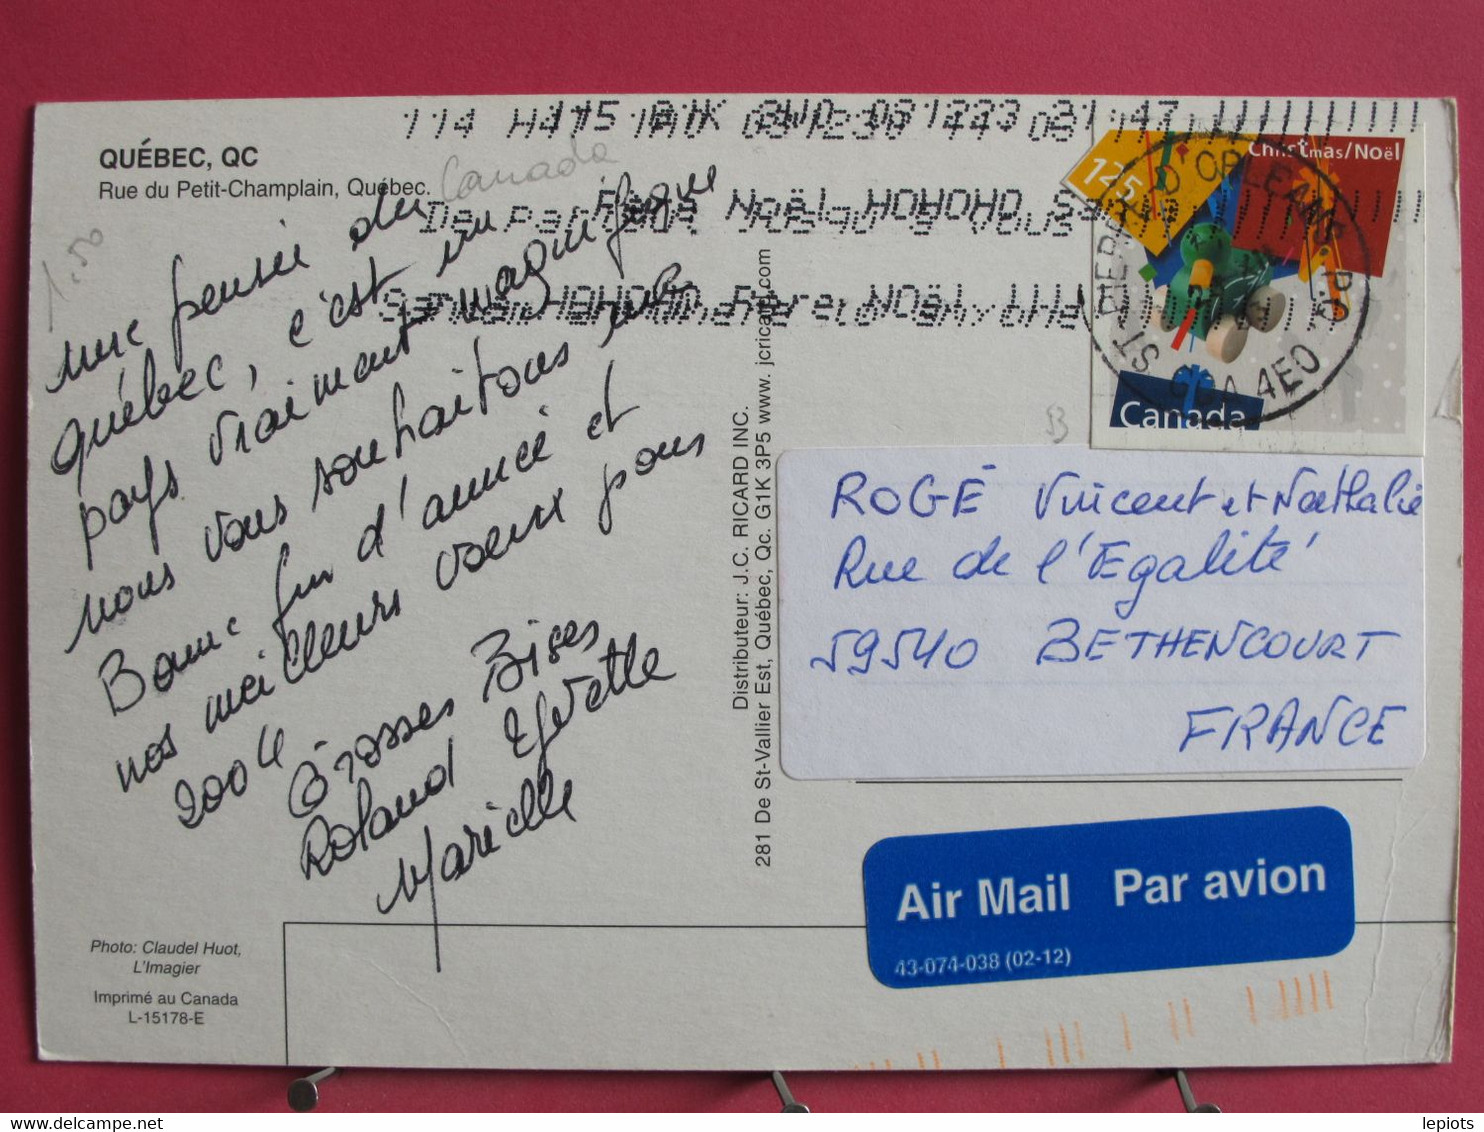 QUÉBEC, QC
Rue du Petit-Champlain, Québec.
Canada
1.50
une pensée du
québec, c'est un
pays vraiment magnifique
nous vous souhaitons une
Bonne fin d'année et
nos meilleurs voeux pour
2004
Grosses Bises
Roland Yvette
Marielle
Photo: Claudel Huot,
L'Imagier
Imprimé au Canada
L-15178-E
Distributeur: J.C. RICARD INC.
281 De St-Vallier Est, Québec, Qc. G1K 3P5 www. jcricard.com
Christmas/Noël
125
Canada
ST-PIERRE D'ORLEANS P.Q.
4E0
ROGÉ Vincent et Nathalie
Rue de l'Egalité
59540 BETHENCOURT
FRANCE
Air Mail Par avion
43-074-038 (02-12)
delcampe.net
lepiots